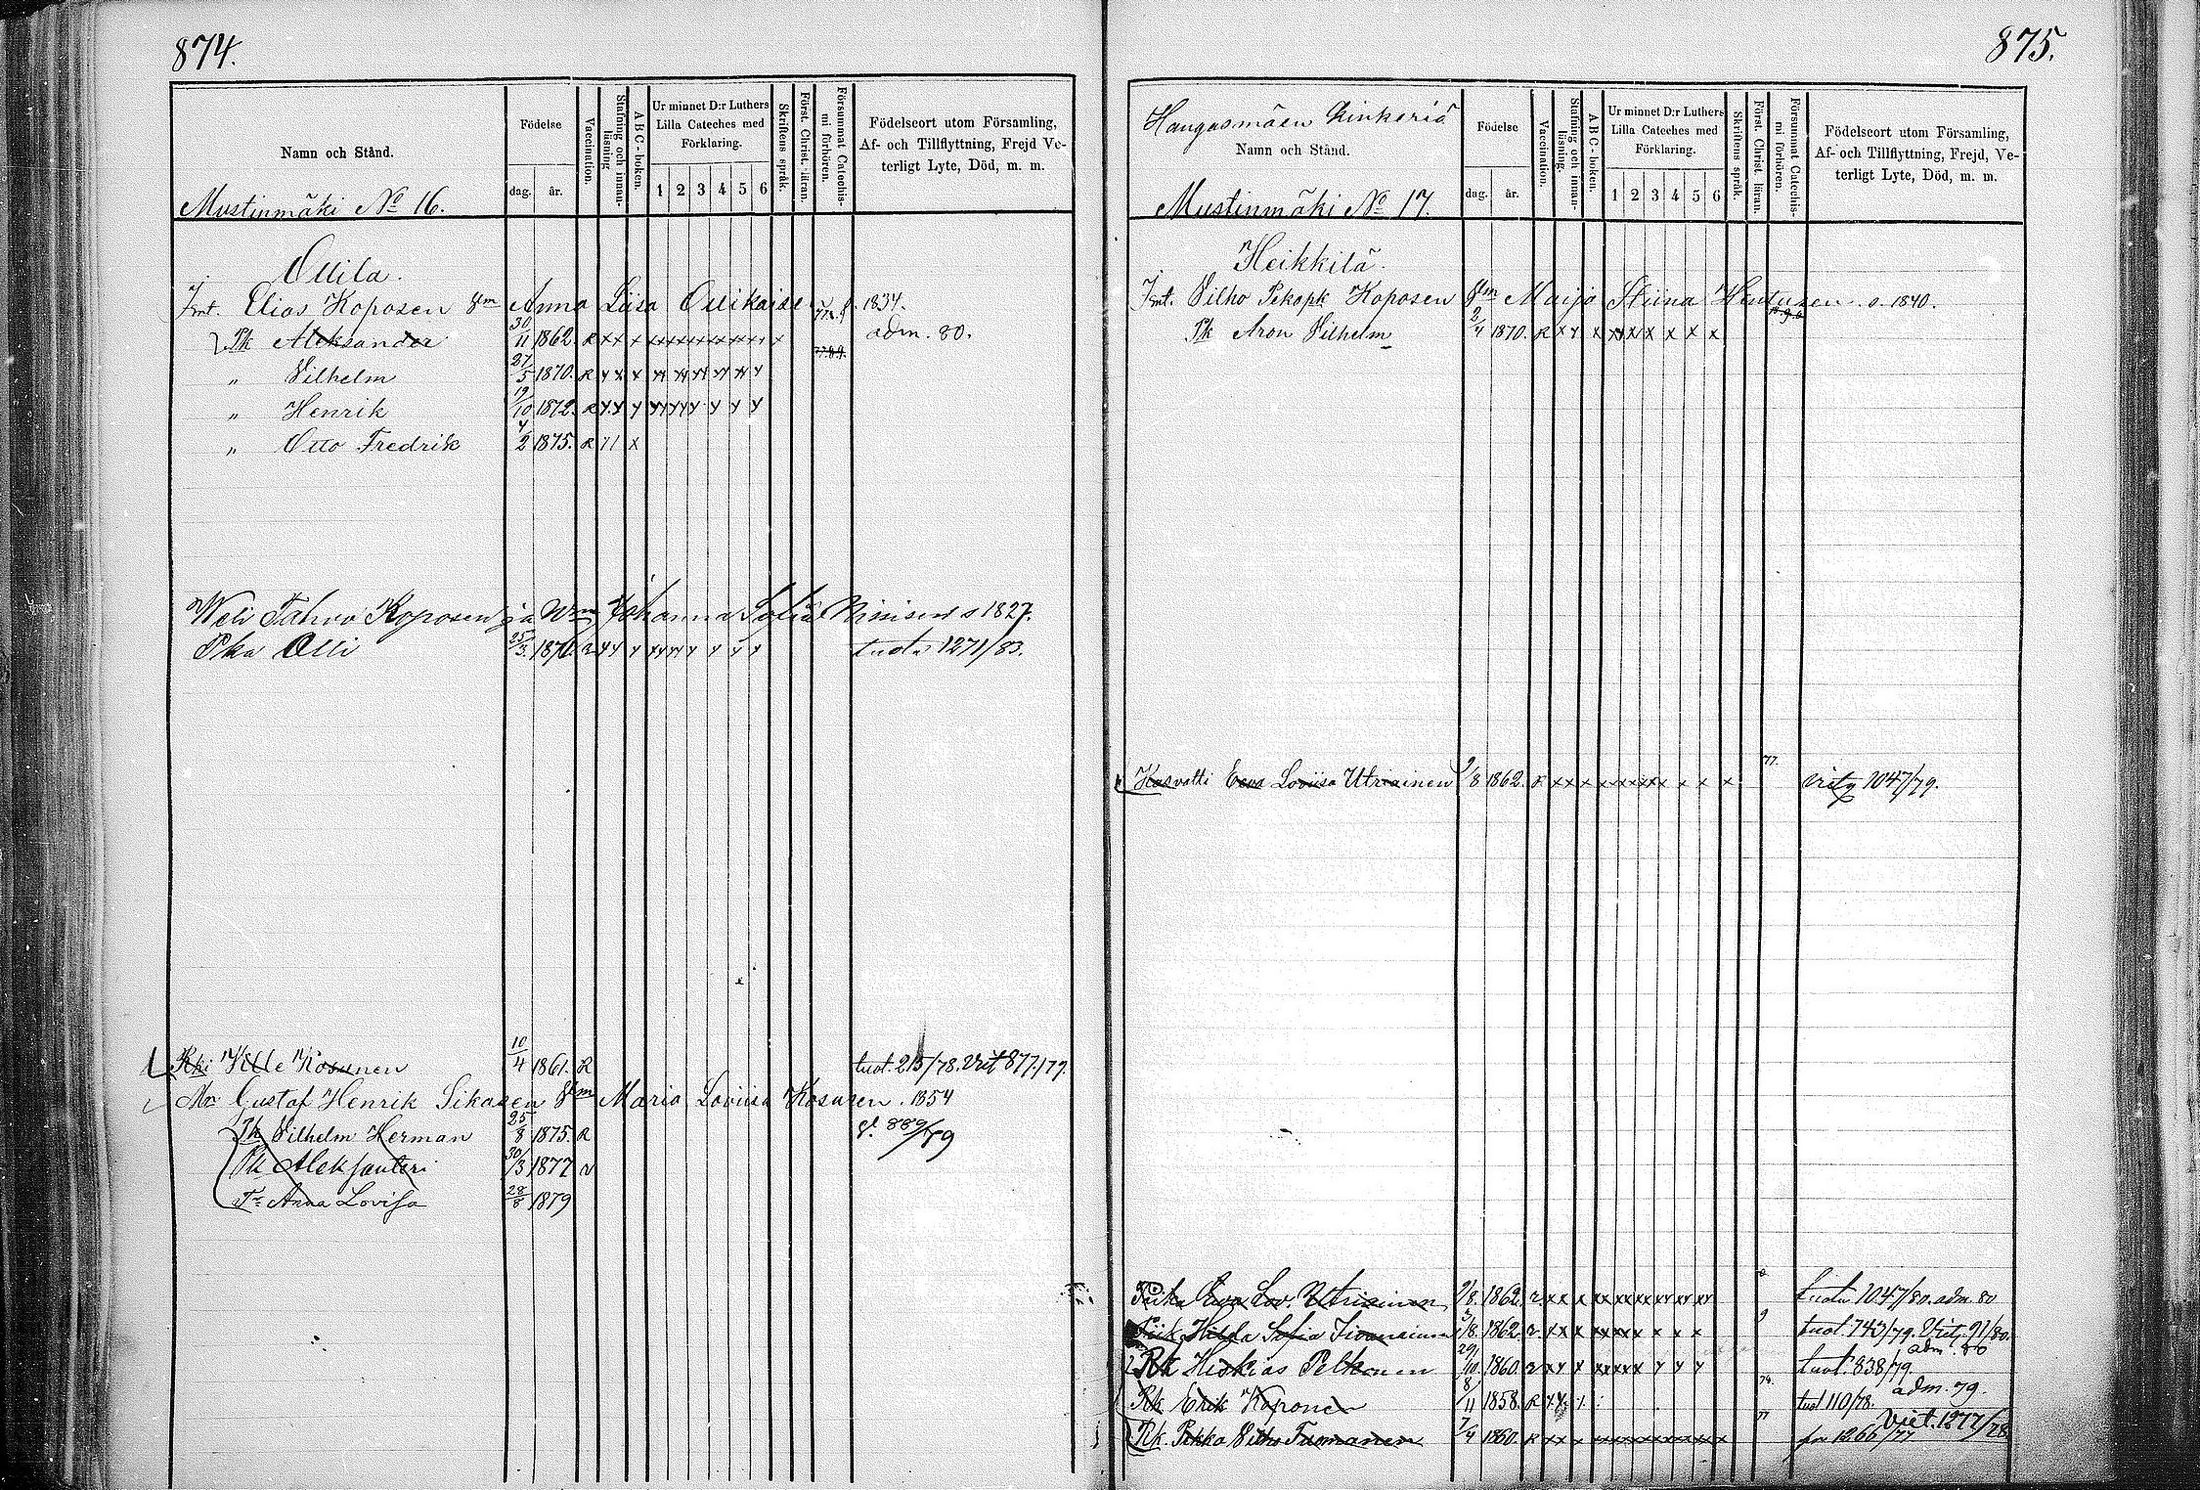 874.
Namn och Stånd.
Födelse
dag.
år.
Vaccination.
Stafning och innan-
läsning
A B C - boken.
Ur minnet D:r Luthers
Lilla Cateches med
Förklaring.
1 2 3 4 5 6
Skriftens språk.
Först. Christ. läran.
Försummat Catechis-
mi förhören.
Födelseort utom Församling,
Af- och Tillflyttning, Frejd Ve-
terligt Lyte, Död, m. m.
Mustinmäki No 16.
Ollila.
Elias Koposen Anna Liisa Ollikaisen 1834.
Pk Aleksander 30/11 1862. R x x x x x x x x x x x adm. 80.
„ Vilhelm 27/5 1870. R
„ Henrik 19/10 1872. R
„ Otto Fredrik 4/2 1875. R 11 x
Weli Tahvo Koposen ja Wm Johanna Sofia Minisen s 1827.
Pka Olli 25/3 1870. tuotu 1271/83.
Rki Ville Kosunen 10/4 1861. R tuot. 215/78. Vret 877/79.
Mn Gustaf Henrik Sikasen Maria Loviisa Kosusen. 1854
Pk Vilhelm Herman 25/8 1875. R 889/79
Pk Aleksanteri 30/3 1877
Tr Anna Lovisa 28/8 1879
875.
Hangasmäen Kinkeriä
Namn och Stånd.
Födelse
dag.
år.
Vaccination.
Stafning och innan-
läsning.
A B C - boken.
Ur minnet D:r Luthers
Lilla Cateches med
Förklaring.
1 2 3 4 5 6
Skriftens språk.
Först. Christ. läran.
Försummat Catechis-
mi förhören.
Födelseort utom Församling,
Af- och Tillflyttning, Frejd, Ve-
terligt Lyte, Död, m. m.
Mustinmäki No 17.
Heikkilä.
Vilho Pekanp Koposen Maija Stiina s. 1840.
Pk Aron Vilhelm 2/4 1870. R x x x x x x x x x
Kasvatti Eeva Loviisa Utriainen 9/8 1862. R x x x x x x x x x x 77. 1047/79.
Piika Eva Lov. Utriainen 9/8 1862. tuotu 1047/80. adm. 80
Piik Hilda Sofia 5/8 1862. 9 tuot. 743/79. 91/80.
Rk Hiskias Pelkonen 29/10 1860. tuot. 838/79. adm. 80
Rk Erik Koponen 8/11 1858. R 74. tuot 110/78. adm. 79.
Rk. Pekka Vilho Tuomainen 7/4 1860. R 77 1266/77 Viet. 1277/78